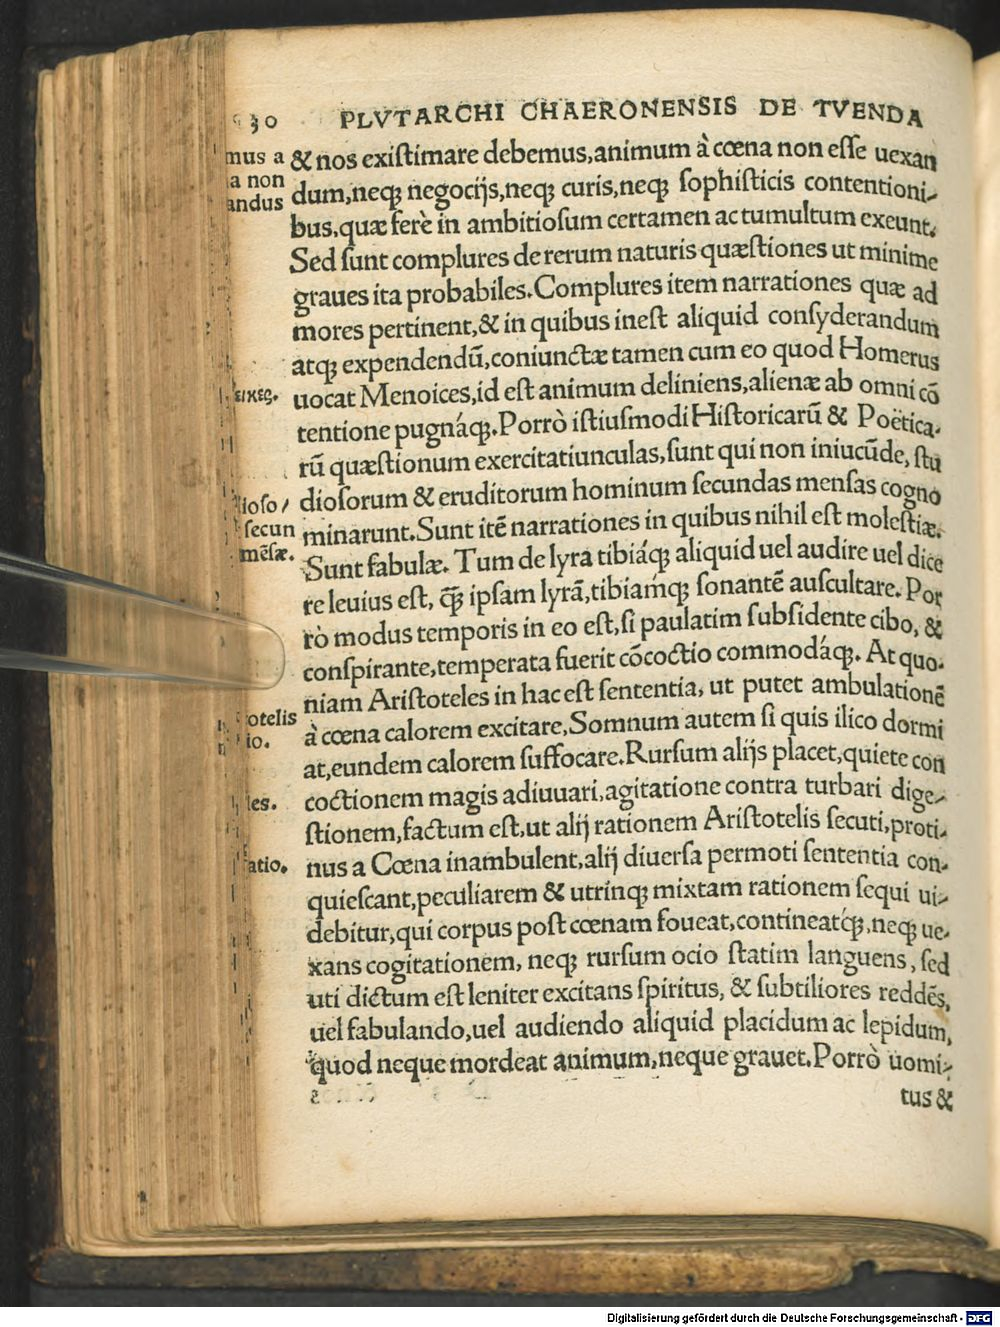 30 PLVTARCHI CHAERONENSIS DE TVENDA
mus a
a non
andus
& nos existimare debemus, animum à cœna non esse uexan
dum, neq; negocijs, neq; curis, neq; sophisticis contentioni-
bus, quæ ferè in ambitiosum certamen ac tumultum exeunt.
Sed sunt complures de rerum naturis quæstiones ut minime
graues ita probabiles. Complures item narrationes quæ ad
mores pertinent, & in quibus inest aliquid consyderandum
atq; expendendū, coniunctæ tamen cum eo quod Homerus
εικες.
uocat Menoices, id est animum deliniens, alienæ ab omni cō
tentione pugnáq;. Porrò istiusmodi Historicarū & Poëtica-
rū quæstionum exercitatiunculas, sunt qui non iniucūde, stu
dioso/
secun
mēsæ.
diosorum & eruditorum hominum secundas mensas cogno
minarunt. Sunt itē narrationes in quibus nihil est molestiæ.
Sunt fabulæ. Tum de lyra tibiáq; aliquid uel audire uel dice
re leuius est, q̃ȝ ipsam lyrā, tibiamq́; sonantē auscultare. Por
rò modus temporis in eo est, si paulatim subsidente cibo, &
conspirante, temperata fuerit cōcoctio commodáq;. At quo-
niam Aristoteles in hac est sententia, ut putet ambulationē
otelis
io.
à cœna calorem excitare, Somnum autem si quis ilico dormi
at, eundem calorem suffocare. Rursum alijs placet, quiete con
les.
coctionem magis adiuuari, agitatione contra turbari dige-
stionem, factum est, ut alij rationem Aristotelis secuti, proti-
atio.
nus a Cœna inambulent, alij diuersa permoti sententia con-
quiescant, peculiarem & utrinq; mixtam rationem sequi ui-
debitur, qui corpus post cœnam foueat, contineatq́;, neq; ue-
xans cogitationem, neq; rursum ocio statim languens, sed
uti dictum est leniter excitans spiritus, & subtiliores reddēs,
uel fabulando, uel audiendo aliquid placidum ac lepidum,
quod neque mordeat animum, neque grauet. Porrò uomi-
tus &
Digitalisierung gefördert durch die Deutsche Forschungsgemeinschaft - DFG